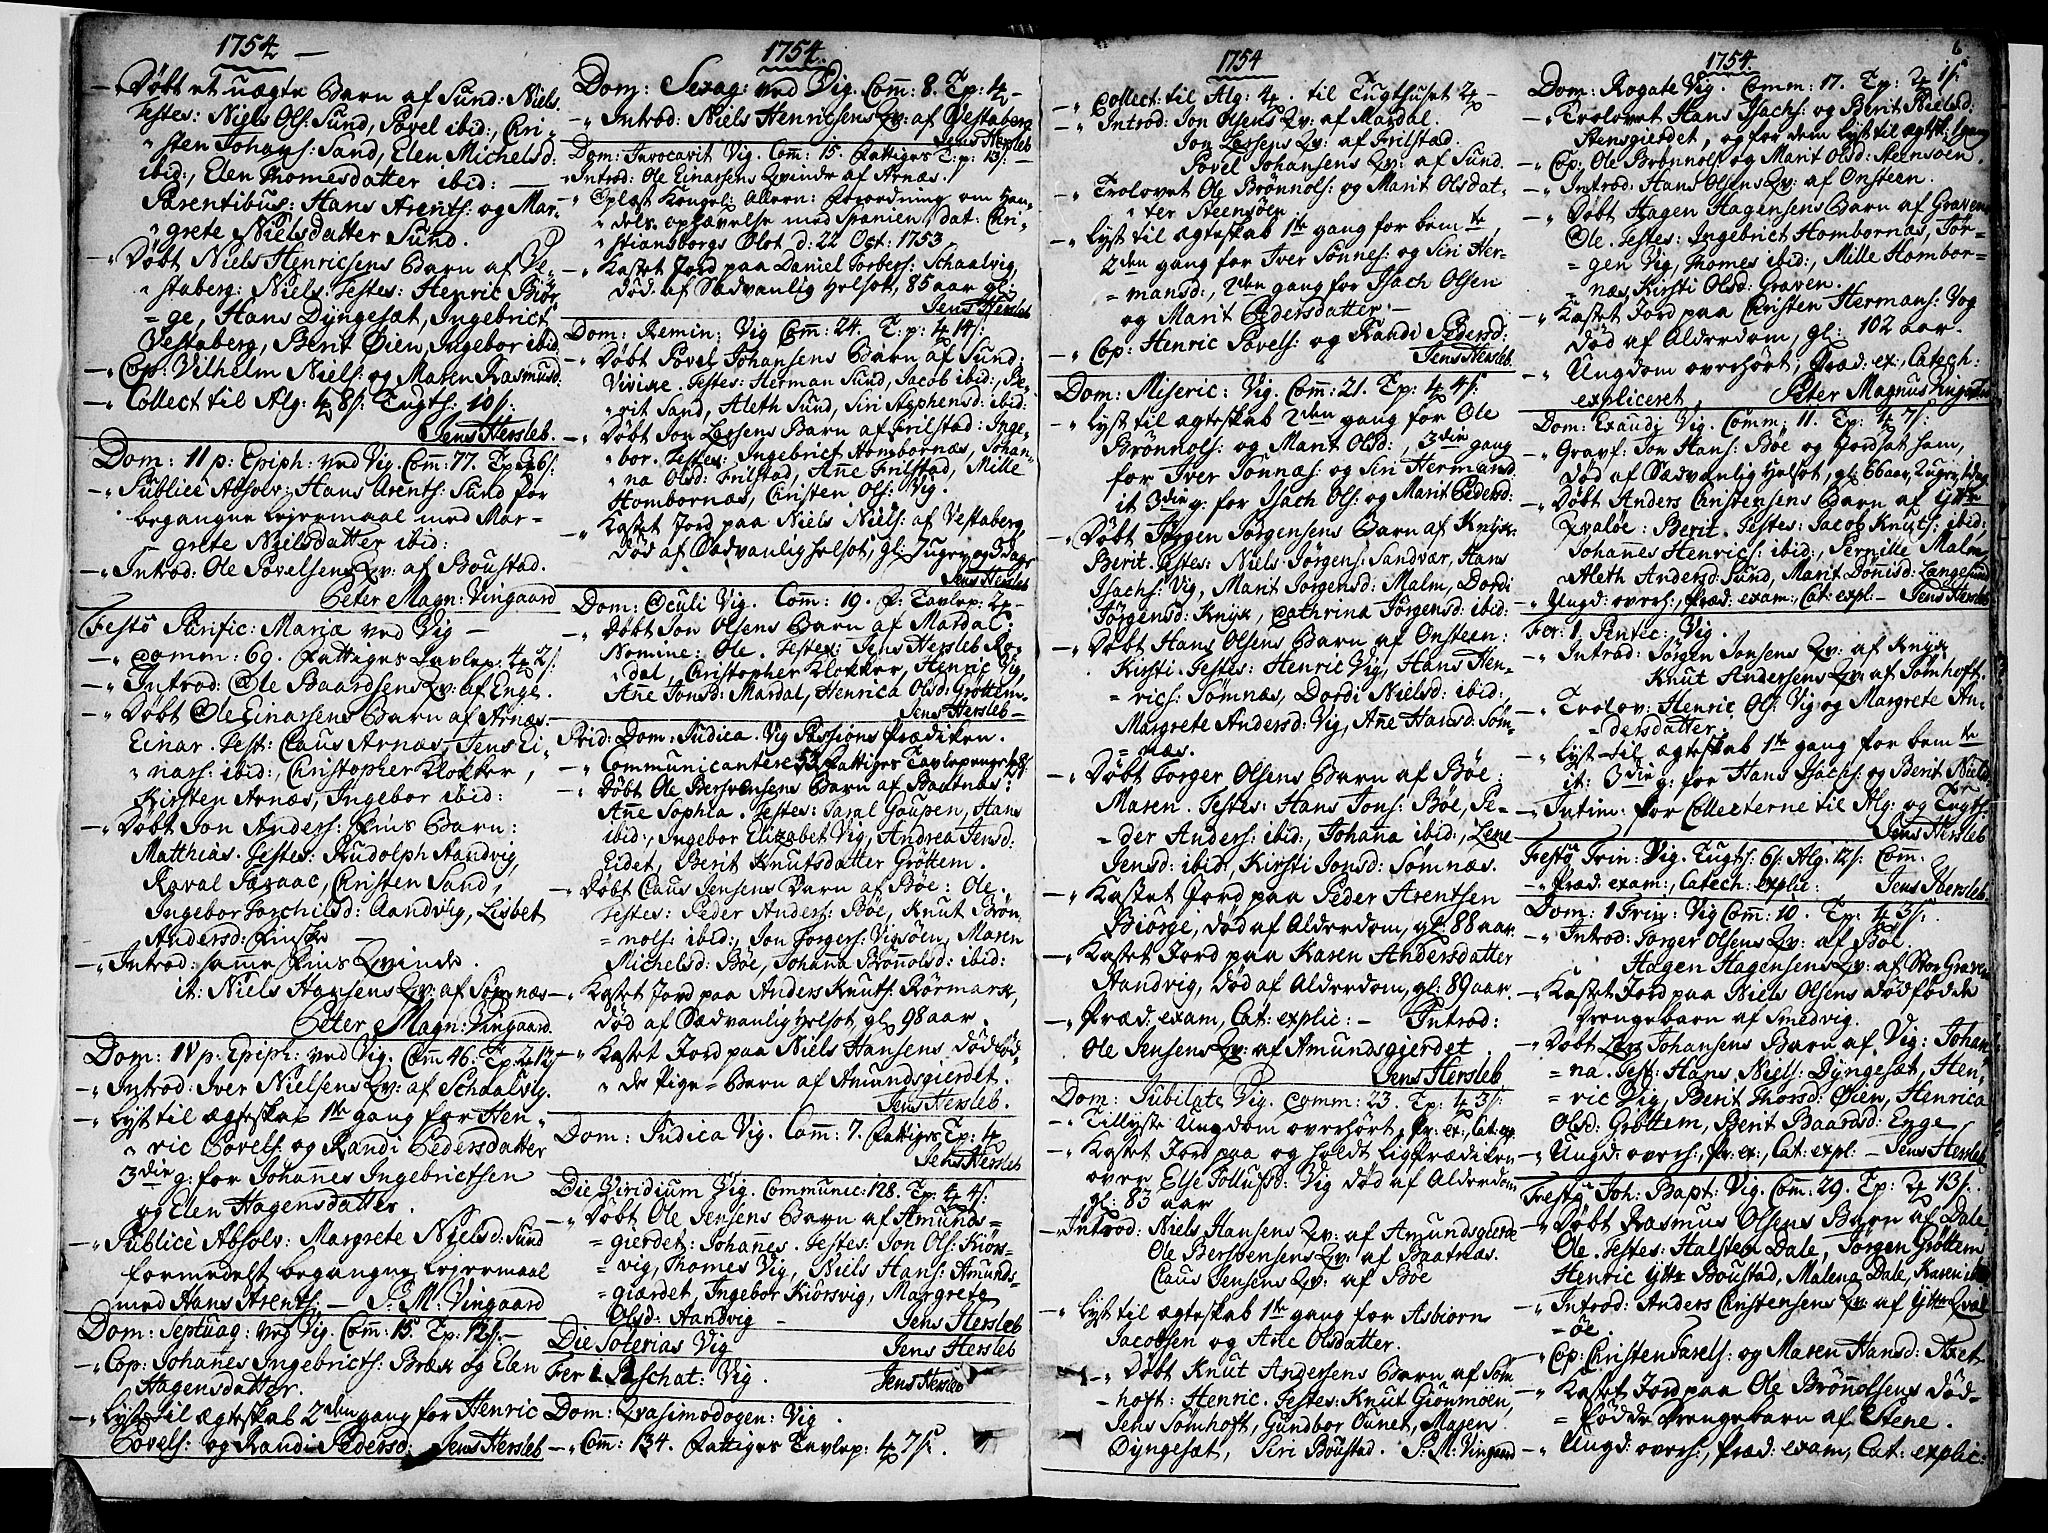 1754
-„ Døbt et uægte Barn af Sund: Niels.
Testes: Niels Ols: Sund, Povel ibid:, Chri-
„ sten Johans: Sand, Elen Michelsd:
ibid:, Elen Thomesdatter ibid: —
Parentibus: Hans Arents: og Mar-
„ grete Nielsdatter Sund.
-„ Døbt Niels Henricsens Barn af Ve-
„ staberg: Niels. Testes: Henric Biör-
= ge, Hans Dyngesæt, Ingebrict
Vestaberg, Berit Øien, Ingebor ibid
-„ Cop: Vilhelm Niels: og Maren Rasmusd:
-„ Collect til Alg: 4 8 s: Tugts: 10 s:
Jens Hersleb.
Dom: 11 p: Epiph: ved Vig. Com: 77. Tp: 6 s:
-„ Publicé Absolv: Hans Arents: Sund for
begangne Lejermaal med Mar-
grete Nielsdatter ibid:
-„ Introd: Ole Povelsens Qv: af Boustad.
Peter Magn: Vingaard
Festo Purific: Mariæ ved Vig —
-„ Comm: 69. Fattiges Tavlep: 4 2 s:
-„ Introd: Ole Baardsens Qv: af Enge.
-„ Døbt Ole Einarsens Barn af Arnæs.
Einar. Test: Claus Arnæs, Jens Ei-
„ nars: ibid:, Christopher Klokker,
Kirsten Arnæs, Ingebor ibid:
-„ Døbt Jon Anders: Fins Barn:
Matthias. Testes: Rudolph Aandvig,
Christen Sand,
Ingebor Torchilsd: Aandvig, Lisbet
Andersd: Finske —
-„ Introd: samme Fins Qvinde.
it: Niels Hansens Qv: af Sömnæs
Peter Magn: Vingaard.
Dom: IV p: Epiph: ved Vig. Com 46. Tp: 2 12 s
-„ Introd: Iver Nielsens Qv: af Schaalvig.
-„ Lyst til ægteskab 1te gang for Hen-
„ ric Povels: og Randi Pedersdatter
3die g: for Johannes Ingebrictsen
og Elen Hagensdatter.
-„ Publice Absolv: Margrete Nielsd: Sund
formedelst begangne Lejermaal
med Hans Arents. — P. M: Vingaard
Dom: Septuag: ved Vig. Com: 15. Tp: 12 s: —
-„ Cop: Johanes Ingebricts: Bræk og Elen
Hagensdatter.
-„ Lyst til ægteskab 2den gang for Henric
Povels: og Randi Pedersd: Jens Hersleb
1754.
Dom: Sexag: ved Vig. Com: 8. Tp: 4 —
-„ Introd: Niels Henricsens Qv: af Vestaberg
Jens Hersleb
Dom: Invocavit Vig. Com: 15. Fattiges Tp: 13 s: —
„ Introd: Ole Einarsens Qvinde af Arnæs.
-„ Oplæst Kongel: Allern: Forordning om Han-
„ dels ophævelse med Spanien dat: Chri-
„ stiansborgs Slot d: 22 Oct: 1753.
-„ Kastet Jord paa Daniel Torbers: Schaalvig,
død af Sædvanlig Helsot, 85 aar gl:
Jens Hersleb
Dom: Remin: Vig Com: 24. Tp: 4 14 s:
-„ Døbt Povel Johansens Barn af Sund:
Vivike. Testes: Herman Sund, Jacob ibid:, Be-
„ rit Sand, Aleth Sund, Siri Styphensd: ibid:
-„ Døbt Jon Larsens Barn af Frilstad: Inge-
„ bor. Testes: Ingebrict Hombornæs, Johan-
„ na Olsd: Frilstad, Ane Frilstad, Mille
Hombornæs, Christen Ols: Vig.
-„ Kastet Jord paa Niels Niels: af Vestaberg,
død af Sædvanlig Helsot, gl: 7 uger og 3 dage
Jens Hersleb
Dom: Oculi Vig. Com: 19. F: Tavlep: 2 —
-„ Døbt Jon Olsens Barn af Mardal:
Nomine: Ole. Testes: Jens Hersleb Ro-
„ dal, Christopher Klokker, Henric Vig,
Ane Jonsd: Mardal, Henrica Olsd: Gröttem —
Jens Hersleb —
Prid: Dom: Judica. Vig Passions Prædiken.
-„ Communicantere 53. Fattiges Tavlepenge 4 8 s:
-„ Døbt Ole Bersvensens Barn af Baatnæs:
Ane Sophia. Testes: Taral Goupen, Hans
ibid:, Ingebor Elizabet Vig, Andrea Jensd:
Eidet, Berit Knutsdatter Gröttem.
-„ Døbt Claus Jensens Barn af Böe: Ole.
Testes: Peder Anders: Böe, Knut Brön-
= nols: ibid:, Jon Torgers: Vigsöen, Maren
Michelsd: Böe, Johana Brönolsd: ibid:
-„ Kastet Jord paa Anders Knuts: Rörmark,
død af Sædvanlig Helsot, gl: 98 aar.
-„ Kastet Jord paa Niels Hansens dödföd-
„ de Pige-Barn af Amundsgierdet.
Jens Hersleb.
Dom: Judica Vig. Com: 7. Fattiges Tp: 4
Jens Hersleb
Die Viridium Vig. Communic: 128. Tp: 4 4 s:
-„ Døbt Ole Jensens Barn af Amunds=
= gierdet: Johannes. Testes: Jon Ols: Kiörs-
= vig, Thomes Vig, Niels Hans: Amunds-
= giærdet, Ingebor Kiörsvig, Margrete
Olsd: Aandvig — Jens Hersleb
Die Soterias Vig Jens Hersleb
Fer 1. Paschat: Vig. Jens Hersleb
Dom: Qvasimodogen: Vig.
-„ Com: 134. Fattiges Tavlep: 4 7 s:
1754
-„ Collect: til Alg: 4. til Tugthuset 4 —
-„ Introd: Jon Olsens Qv: af Mardal.
Jon Larsens Qv: af Frilstad.
Povel Johansens Qv: af Sund.
-„ Trolovet Ole Brönnols: og Marit Olsdat-
„ ter Steensöen
-„ Lyst til ægteskab 1te gang for bemte,
2den gang for Iver Sönnes: og Siri Her-
= mansd:, 2den gang for Isach Olsen
og Marit Pedersdatter. —
-„ Cop: Henric Povels: og Randi Pedersd:
Jens Hersleb.
Dom: Miseric: Vig. Com: 21. Tp: 4 4 s:
-„ Lyst til ægteskab 2den gang for Ole
Brönnols: og Marit Olsd:, 3die gang
for Iver Sönnæs: og Siri Hermansd:
it 3die g: for Isach Ols: og Marit Pedersd:
-„ Døbt Jörgen Jörgensens Barn af Knyk:
Berit. Testes: Niels Jörgens: Sandvær, Hans
Isachs: Vig, Marit Jörgensd: Malm, Dordi
Jörgensd: Knyk, Cathrina Jörgensd: ibid:
-„ Døbt Hans Olsens Barn af Onsteen:
Kirsti. Testes: Henric Vig, Hans Hen-
= rics: Sömnæs, Dordi Nielsd: ibid:,
Margrete Andersd: Vig, Ane Hansd: Söm-
= næs.
-„ Døbt Torger Olsens Barn af Böe:
Maren. Testes: Hans Jons: Böe, Pe-
= der Anders: ibid:, Johana ibid:, Lene
Jensd: ibid:, Kirsti Jonsd: Sömnæs.
-„ Kastet Jord paa Peder Arentsen
Biörge, død af Alderdom, gl: 88 aar.
-„ Kastet Jord paa Karen Andersdatter
Aandvig, død af Alderdom, gl: 89 aar.
-„ Præd: exam, Cat: explic: — Introd:
Ole Jensens Qv: af Amundsgierdet.
Jens Hersleb
Dom: Jubilate Vig. Comm: 23. Tp: 4 3 s:
-„ Tillyste Ungdom overhört, Pr: ex:, Cat: exp.
-„ Kastet Jord paa og holdt Ligprædiken
over Else Tollufsd: Vig död af Alderdom
gl: 83 aar
-„ Introd: Niels Hansens Qv: af Amundsgierde
Ole Bersvensens Qv: af Baatnæs.
Claus Jensens Qv: af Böe
-„ Lyst til ægteskab 1te gang for Asbiorn
Jacobsen og Ane Olsdatter.
-„ Døbt Knut Andersens Barn af Söm
hoft: Henric. Testes: Knut Gionmöen,
Jens Sömhoft, Gundbor Ounet, Maren
Dyngesæt, Siri Boustad. P: M: Vingaard
1754. 6
Dom: Rogate Vig. Comm: 17. Tp: 2 1 s:
-„ Trolovet Hans Isachs: og Berit Nielsd:
Stensgierdet, og for dem lyst til ægtesk: 1 gang
-„ Cop: Ole Brönnols: og Marit Olsd: Steensöen.
-„ Introd: Hans Olsens Qv: af Onsteen.
-„ Døbt Hagen Hagensens Barn af Graven:
Ole. Testes: Ingebrict Hombornæs, Jör-
= gen Vig, Thomes ibid:, Mille Hombor-
= næs, Kirsti Olsd: Graven.
-„ Kastet Jord paa Christen Hermans: Vog
død af Alderdom, gl: 102 aar.
-„ Ungdom overhört, Præd: ex:, Catech:
expliceret, Peter Magnus Vingaard
Dom: Exaudi Vig. Comm: 11. Tp: 4 7 s:
-„ Gravf: Jon Hans: Böe og Jordsat ham,
død af Sædvanlig Helsot, gl: 66 aar, 2 uger, 1 dag
-„ Døbt Anders Christensens Barn af Ytter
Qvaløe: Berit. Testes: Jacob Knuts: ibid:,
Johannes Henrics: ibid:, Pernille Malm,
Aleth Andersd: Sund, Marit Dönisd: Langesund
-„ Ungd: overh:, Præd: exam:, Cat: expl: — Jens Hersleb
Fer: 1. Pentec: Vig.
-„ Introd: Jörgen Jonsens Qv: af Knyk
Knut Andersens Qv: af Sömhoft.
-„ Trolov: Henric Ols: Vig og Margrete An-
dersdatter.
-„ Lyst til ægteskab 1te gang for bemte
it: 3die g: for Hans Isachs: og Berit Nielsd:
-„ Intim: for Collecterne til Alg: og Tugts:
Jens Hersleb
Festo Trin: Vig. Tugts: 6 s: Alg: 12 s: Com:
-„ Præd: exam:, Catech: explic: Jens Hersleb
Dom: 1 Trin: Vig Com: 10. Tp: 4 3 s:
-„ Introd: Torger Olsens Qv: af Böe.
Hagen Hagensens Qv: af Stor Graven
-„ Kastet Jord paa Niels Olsens dödfödde
Drengebarn af Smedvig.
-„ Døbt Lars Johansens Barn af Vig: Johan
= na. Test: Hans Niels: Dyngesæt, Hen-
= ric Vig, Berit Thorsd: Øien, Henrica
Olsd: Gröttem, Berit Baardsd: Enge
-„ Ungd: overh:, Pr: ex:, Cat: expl: — Jens Hersleb
Festo Joh: Bapt: Vig. Com: 29. Tp: 2 13 s:
-„ Døbt Rasmus Olsens Barn af Dale
Ole. Testes: Halsten Dale, Jörgen Gröttem
Henric Ytter Boustad, Malena Dale, Karen ibid
-„ Introd: Anders Christensens Qv: af Ytter Qval
= öe.
-„ Cop: Christen Tarels: og Maren Hansd: Axet
-„ Kastet Jord paa Ole Brönnolsens död-
= födde Drengebarn af Stene.
-„ Ungd: overh:, Præd: exam, Cat: explic: